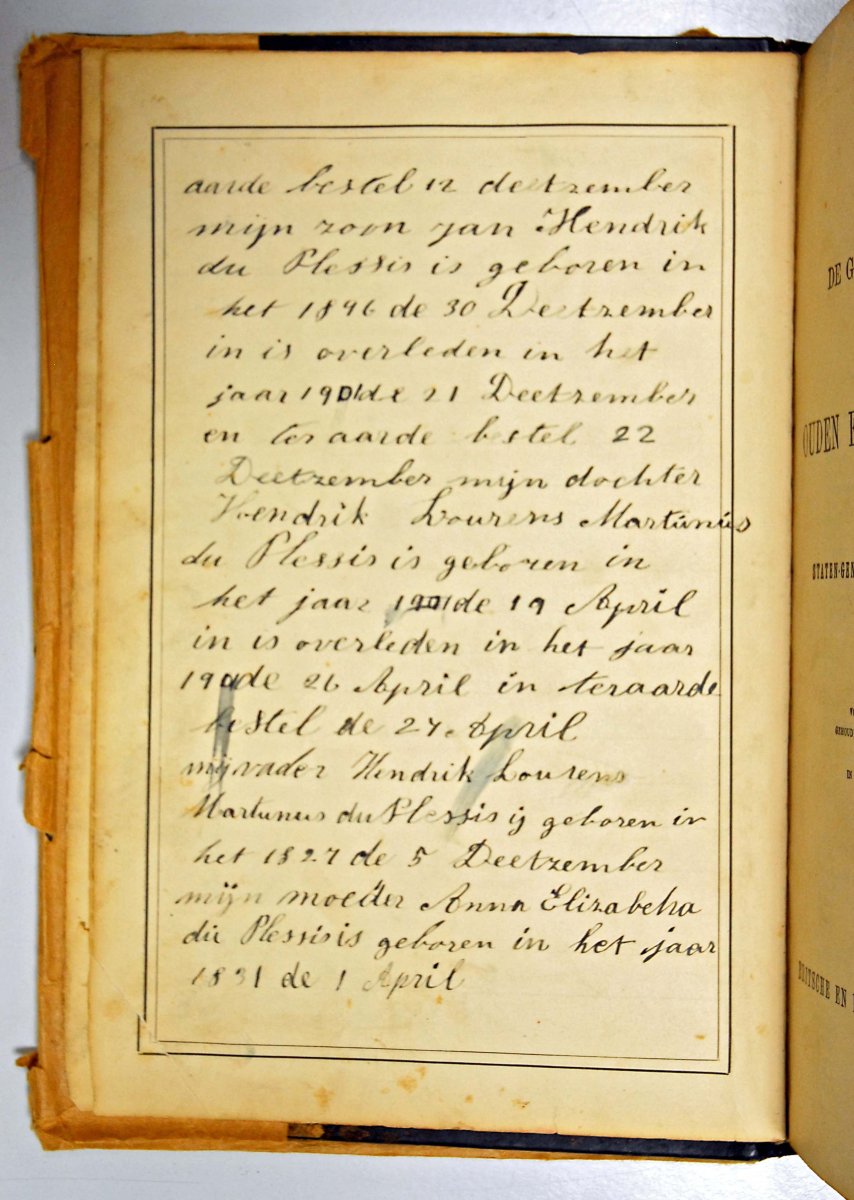 aarde bestel 12 deetzember
mijn zoon Jan Hendrik
du Plessis is geboren in
het 1896 de 30 Deetzember
in is overleden in het
jaar 1901 de 21 Deetzember
en ter aarde bestel 22
Deetzember mijn dochter
Hendrik Lourens Martunus
du Plessis is geboren in
het jaar 1901 de 19 April
in is overleden in het jaar
de 26 April in teraarde
bestel de 27 April
mijvader Hendrik Lourens
Martunus du Plessis ij geboren in
het 1827 de 5 Deetzember
mijn moeder Anna Elizabeha
du Plessis is geboren in het jaar
1831 de 1 April
DE G
OUDEN
STATEN-GEN